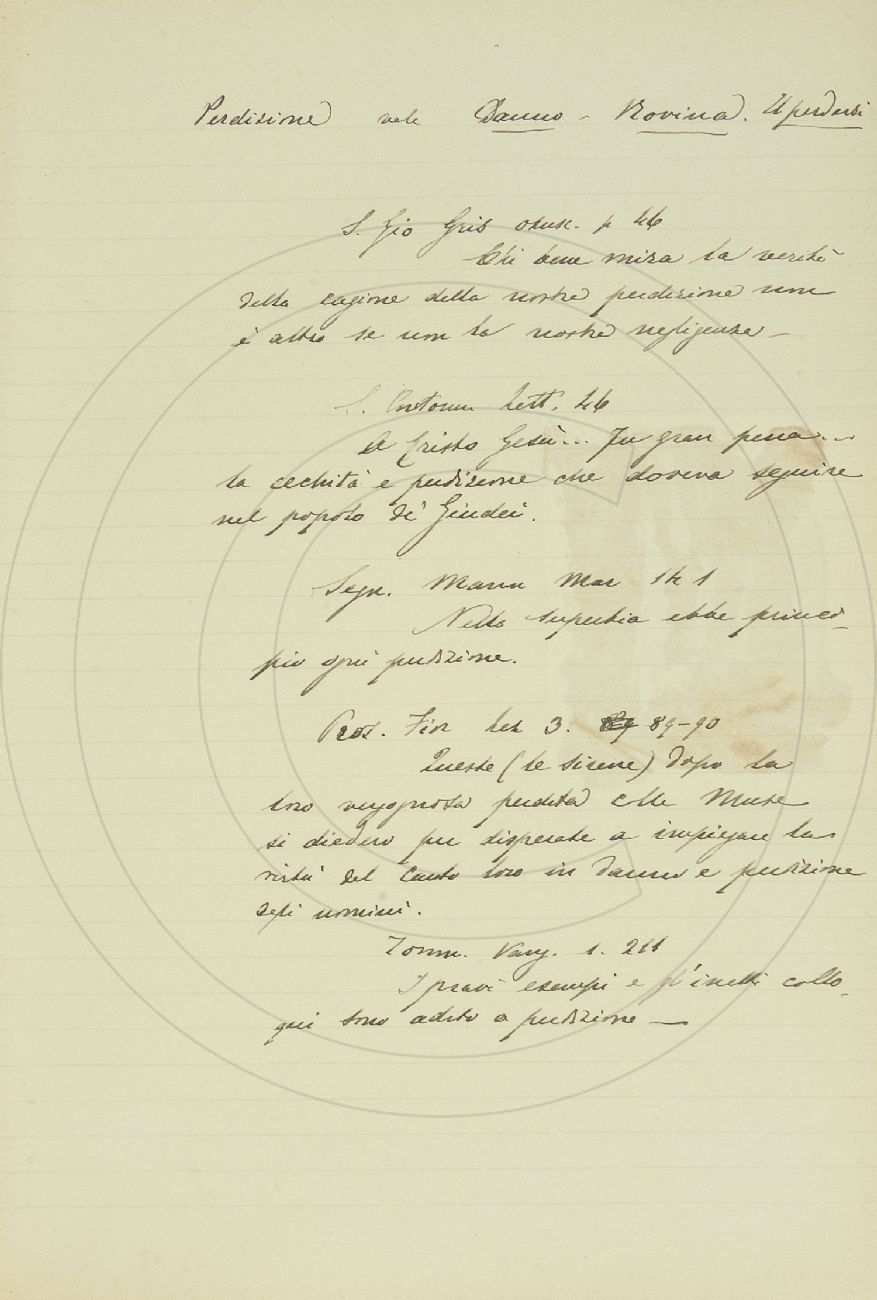 Perdizione vale Danno - Rovina. Il perdersi
S. Gio Gris opusc. p 46
Chi bene mira la verità
della cagione della nostra perdizione non
è altro se non la nostra negligenza —
S. Antonin lett. 46
A Cristo Gesù... Fu gran pena...
la cechità e perdizione che doveva seguire
nel popolo de' Giudei.
Segn. Mann Mar 14 1
Nella superbia ebbe princi-
pio ogni perdizione.
Pros. Fior 3. 89-90
Queste (le sirene) dopo la
loro vergognosa perdita colle Muse
si diedero per disperate a impiegare la
virtù del canto loro in danno e perdizione
degli uomini.
Tomm. Vang. 1. 211
I pravi esempi e gl'inetti collo-
qui sono adito a perdizione —